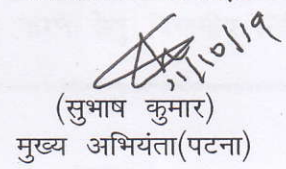 11/10/19
(सुभाष कुमार)
मुख्य अभियंता(पटना)